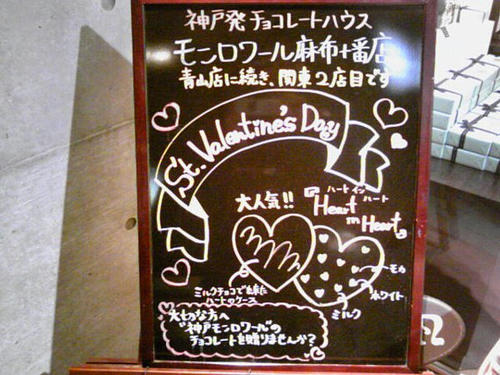 神戸発チョコレートハウス
モンロワール麻布十番店
青山店に続き、関東2店目です
St. Valentine's Day
大人気!!
『Heart ハート
in イン
Heart』 ハート
モカ
ホワイト
ミルク
ミルクチョコで出来た
ハートのケース
大切な方へ
"神戸モンロワール"の
チョコレートを贈りませんか?